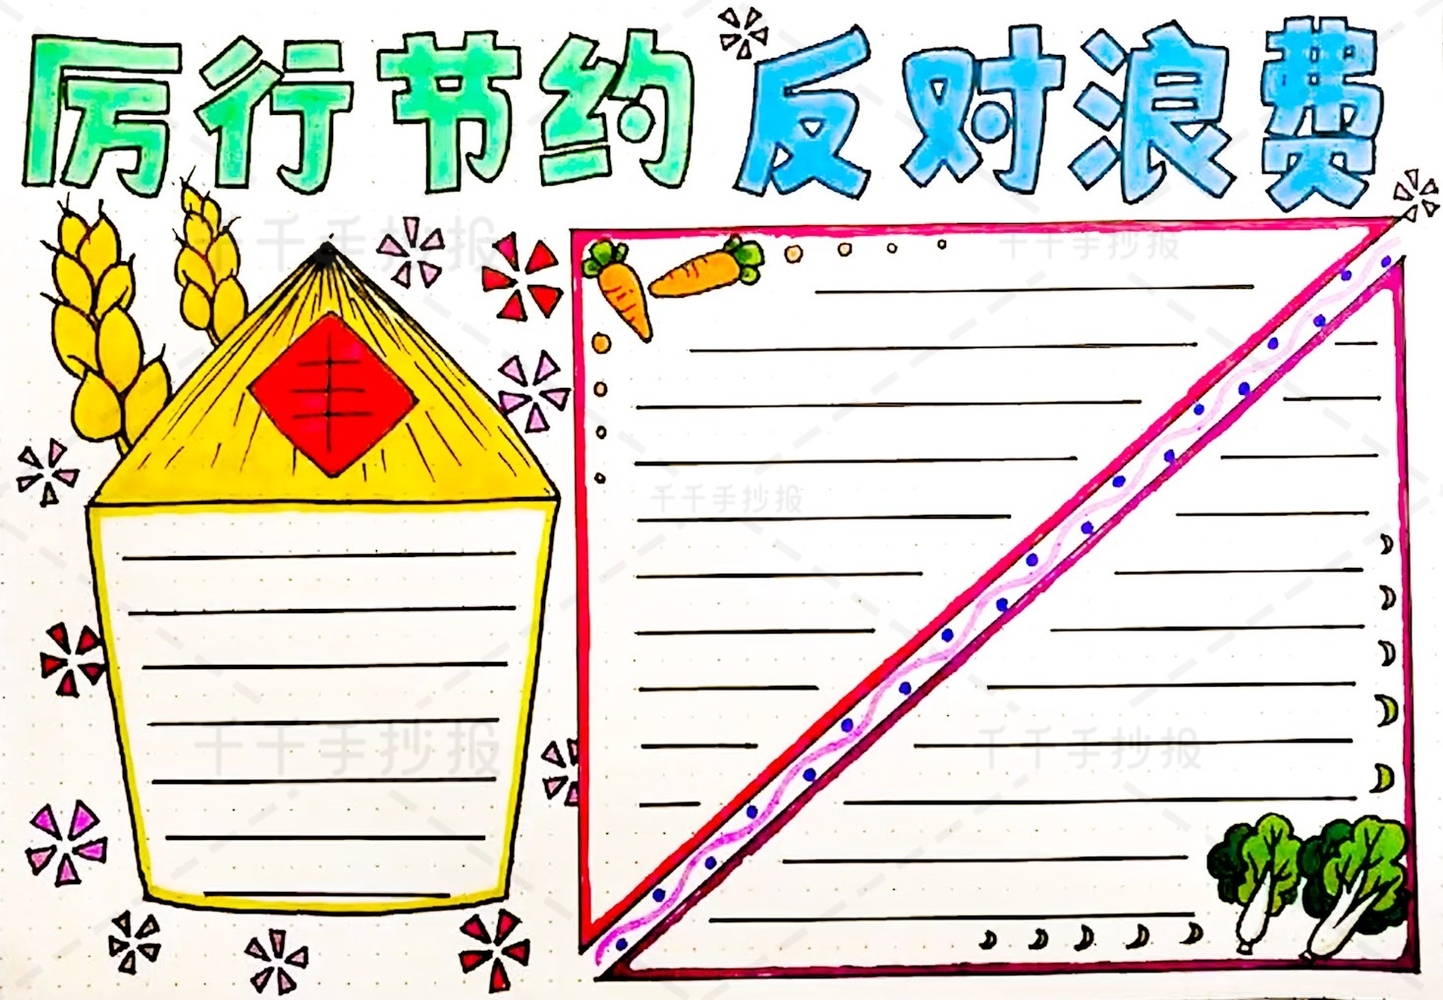 厉行节约 反对浪费
千千手抄报
千千手抄报
丰
千千手抄报
千千手抄报
千千手抄报